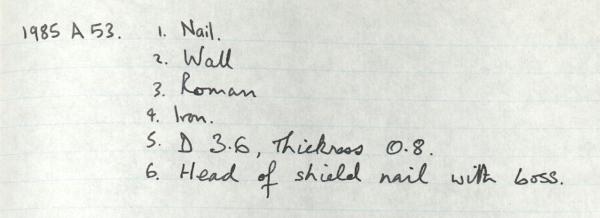 1985 A 53. 1. Nail.
2. Wall
3. Roman
4. Iron.
5. D 3.6, Thickness 0.8.
6. Head of shield nail with boss.